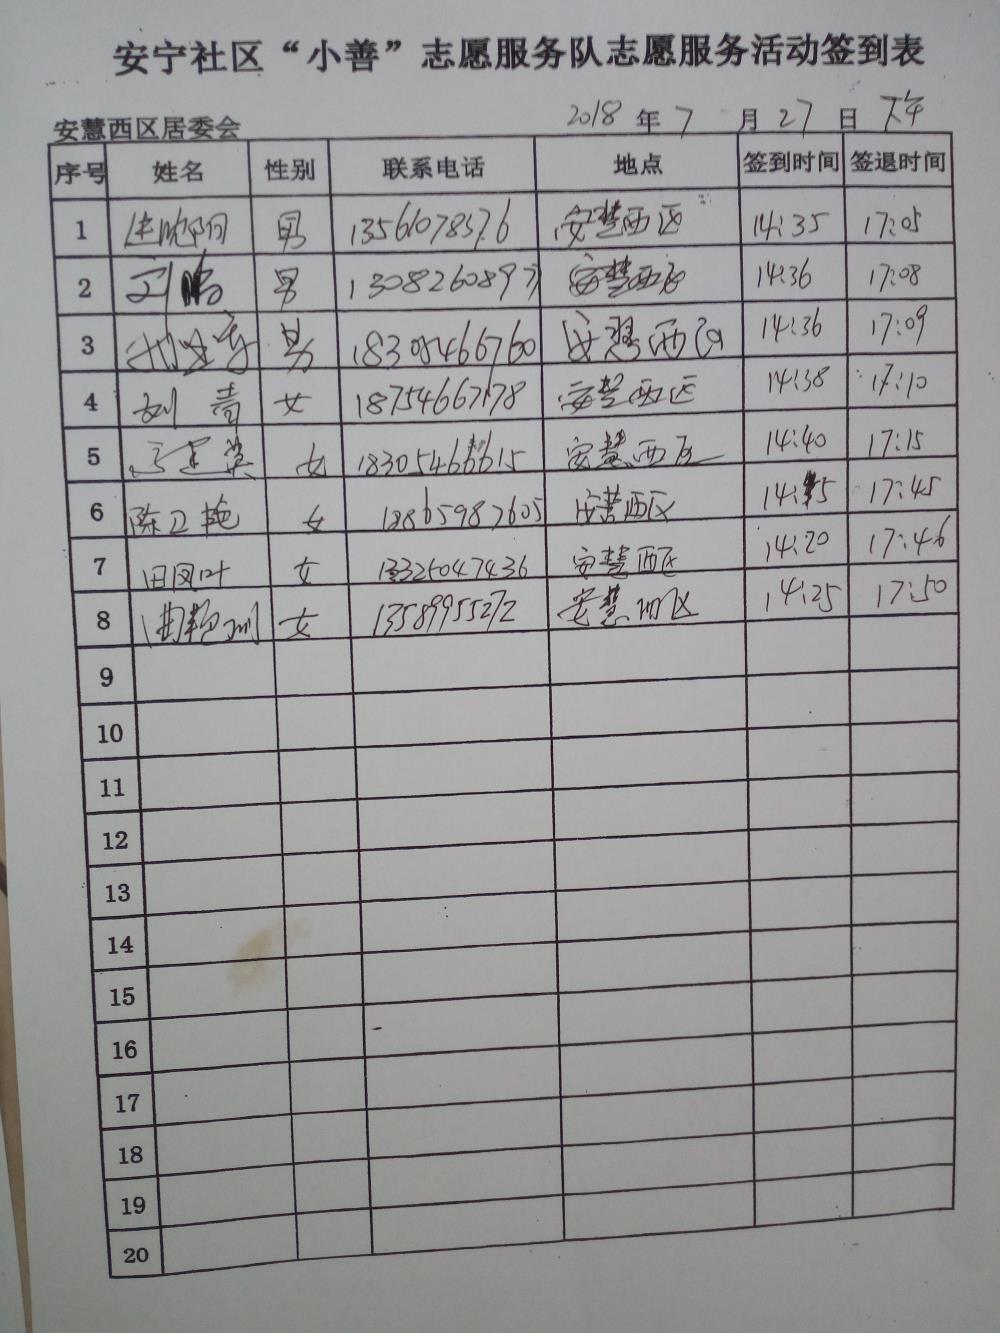 安宁社区“小善”志愿服务队志愿服务活动签到表
安慧西区居委会 2018 年 7 月 27 日 下午
序号 姓名 性别 联系电话 地点 签到时间 签退时间
1 男 安慧西区 14:35 17:05
2 刘鹏 男 1308260897 安慧西区 14:36 17:08
3 男 18305466760 安慧西区 14:36 17:09
4 刘青 女 18754667178 安慧西区 14:38 17:10
5 女 18305466615 安慧西区 14:40 17:15
6 陈卫艳 女 18865987605 安慧西区 17:45
7 田风叶 女 13325047436 安慧西区 14:20 17:46
8 曲艳 女 13589955272 安慧西区 14:25 17:50
9
10
11
12
13
14
15
16
17
18
19
20